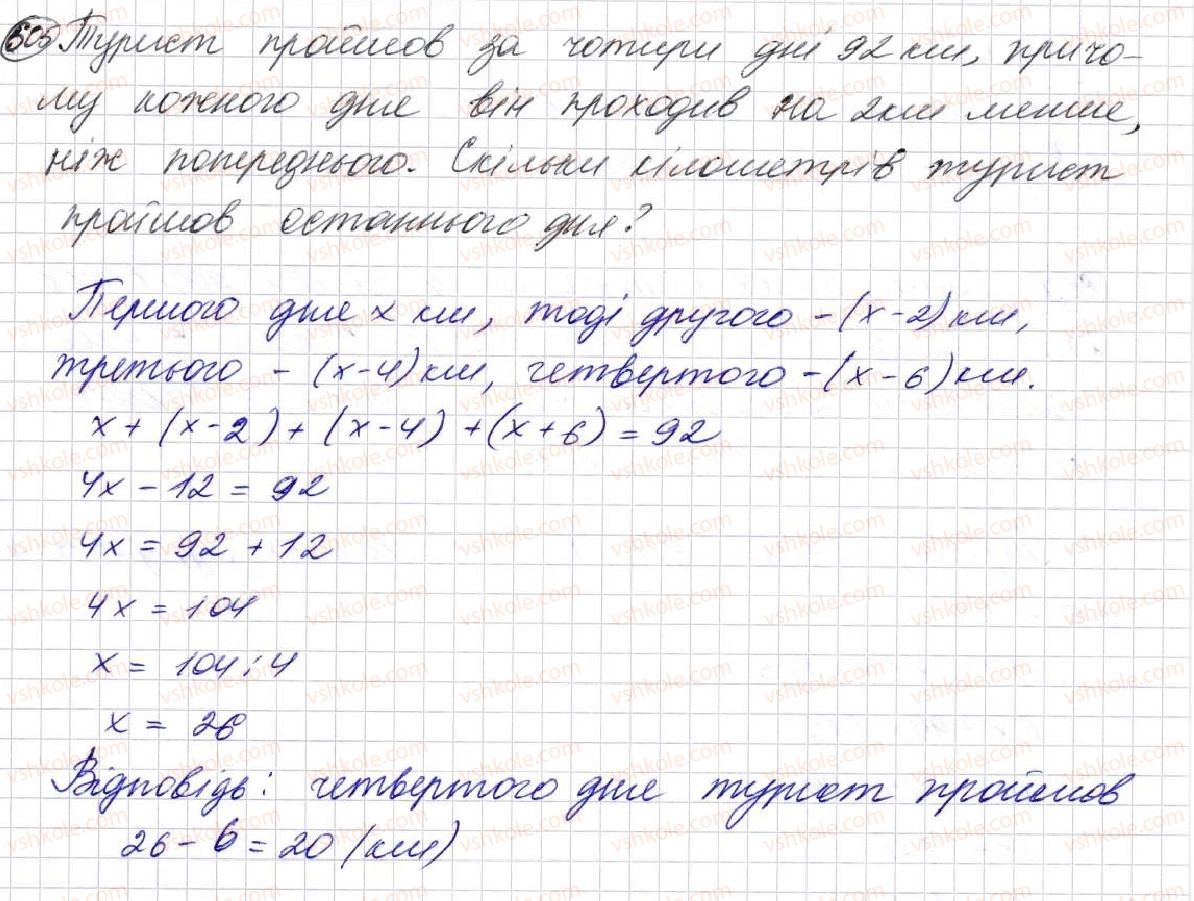 605 Турист пройшов за чотири дні 92 км, причо-
му кожного дня він проходив на 2км менше,
ніж попереднього. Скільки кілометрів турист
пройшов останнього дня?
Першого дня x км, тоді другого - (x-2) км,
третього - (x-4) км, четвертого - (x-6) км.
x + (x-2) + (x-4) + (x+6) = 92
4x - 12 = 92
4x = 92 + 12
4x = 104
x = 104 : 4
x = 26
Відповідь: четвертого дня турист пройшов
26 - 6 = 20 (км)